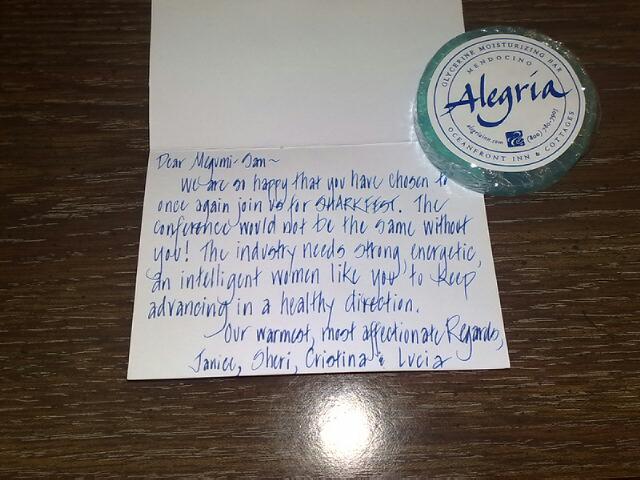 Dear Megumi-San~
We are so happy that you have chosen to
once again join us for SHARKFEST. The
conference would not be the same without
you! The industry needs strong, energetic,
an intelligent women like you to keep
advancing in a healthy direction.
Our warmest, most affectionate Regards,
Janice, Sheri, Cristina & Lucia
GLYCERINE MOISTURIZING BAR
MENDOCINO
Alegria
alegriainn.com
OCEANFRONT INN & COTTAGES